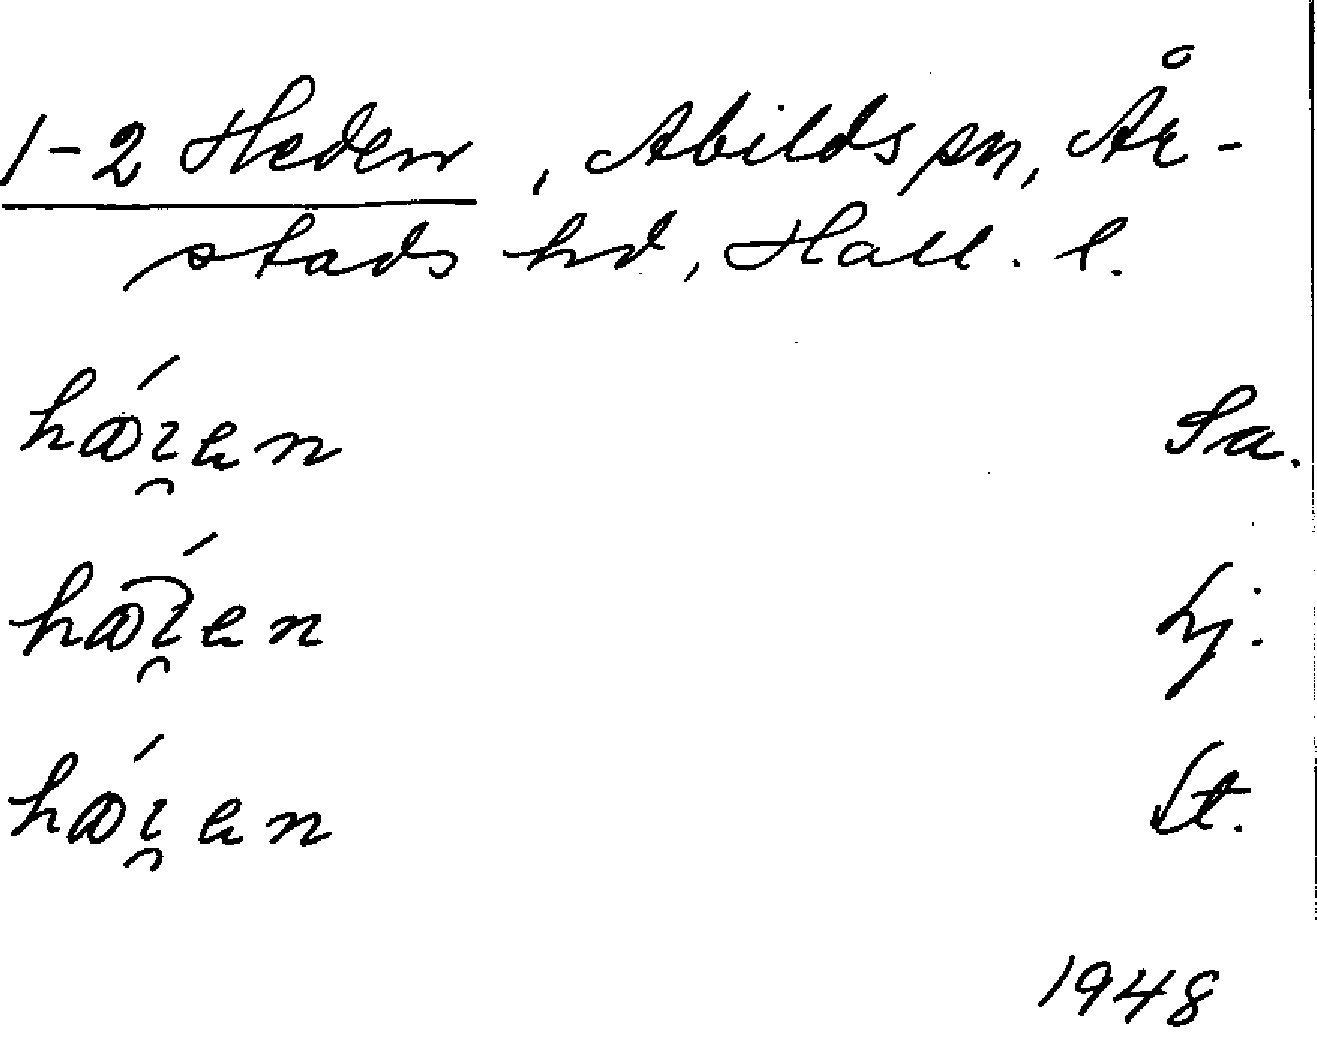 1-2 Heden, Abilds sn, År-
stads hd, Hall. l.
hǽi̯en Sa.
hǽi̯en Lj.
hǽi̯en St.
1948